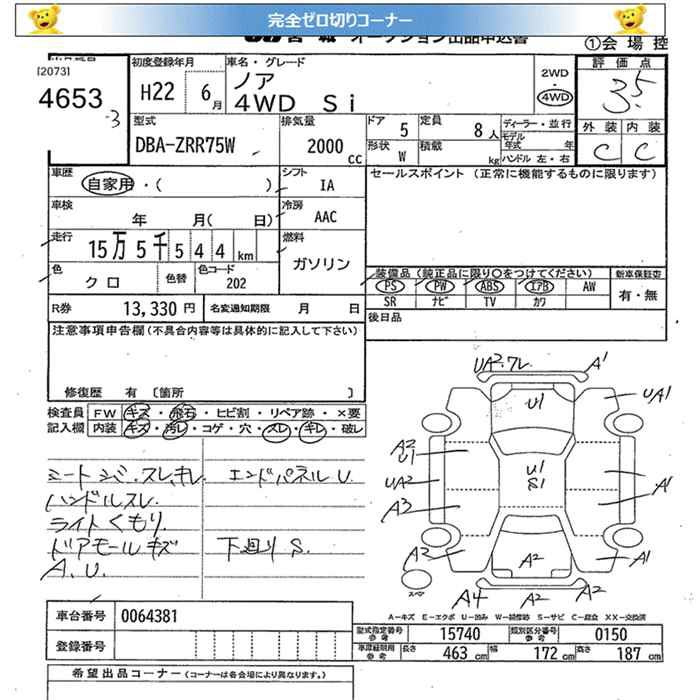 完全ゼロ切りコーナー
オークション出品申込書
①会場控
[2073]
4653
-3
初度登録年月
H22 6月
車名・グレード
ノア
4WD Si
2WD
4WD
評価点
3.5
外装 内装
C C
型式
DBA-ZRR75W
排気量
2000 cc
ドア 5
形状 W
定員 8人
積載 kg
ディーラー・並行
モデル年式 年
ハンドル 左・右
車歴
自家用・( )
シフト
IA
車検
年 月( 日)
冷房
AAC
走行
15万5千544km
燃料
ガソリン
色
クロ
色替
色コード
202
R券 13,330円
名変通知期限 月 日
セールスポイント (正常に機能するものに限ります)
装備品 (純正品に限り○をつけてください)
PS PW ABS エアB AW
SR ナビ TV カワ
新車保証書
有・無
後日品
注意事項申告欄(不具合内容等は具体的に記入して下さい)
修復歴 有 [箇所 ]
検査員記入欄
FW キズ・飛石・ヒビ割・リペア跡・×要
内装 キズ・汚レ・コゲ・穴・スレ・キレ・破レ
シートシバ、スレ、キレ エンドパネルU.
ハンドルスレ
ライトくもり.
ドアモールキズ 下廻りS.
A.U.
UA2.ワレ A1
U1 UA1
A2
U1
UA2
U1
S1
A3 A1
A2 A2 A1
A4 A2 A2
スペア
A－キズ E－エクボ U－凹み W－補修跡 S－サビ C－腐食 XX－交換済
車台番号 0064381
登録番号
型式指定番号参考 15740
類別区分番号参考 0150
車検証用参考 長さ 463cm 幅 172cm 高さ 187cm
希望出品コーナー (コーナーは各会場により異なります。)